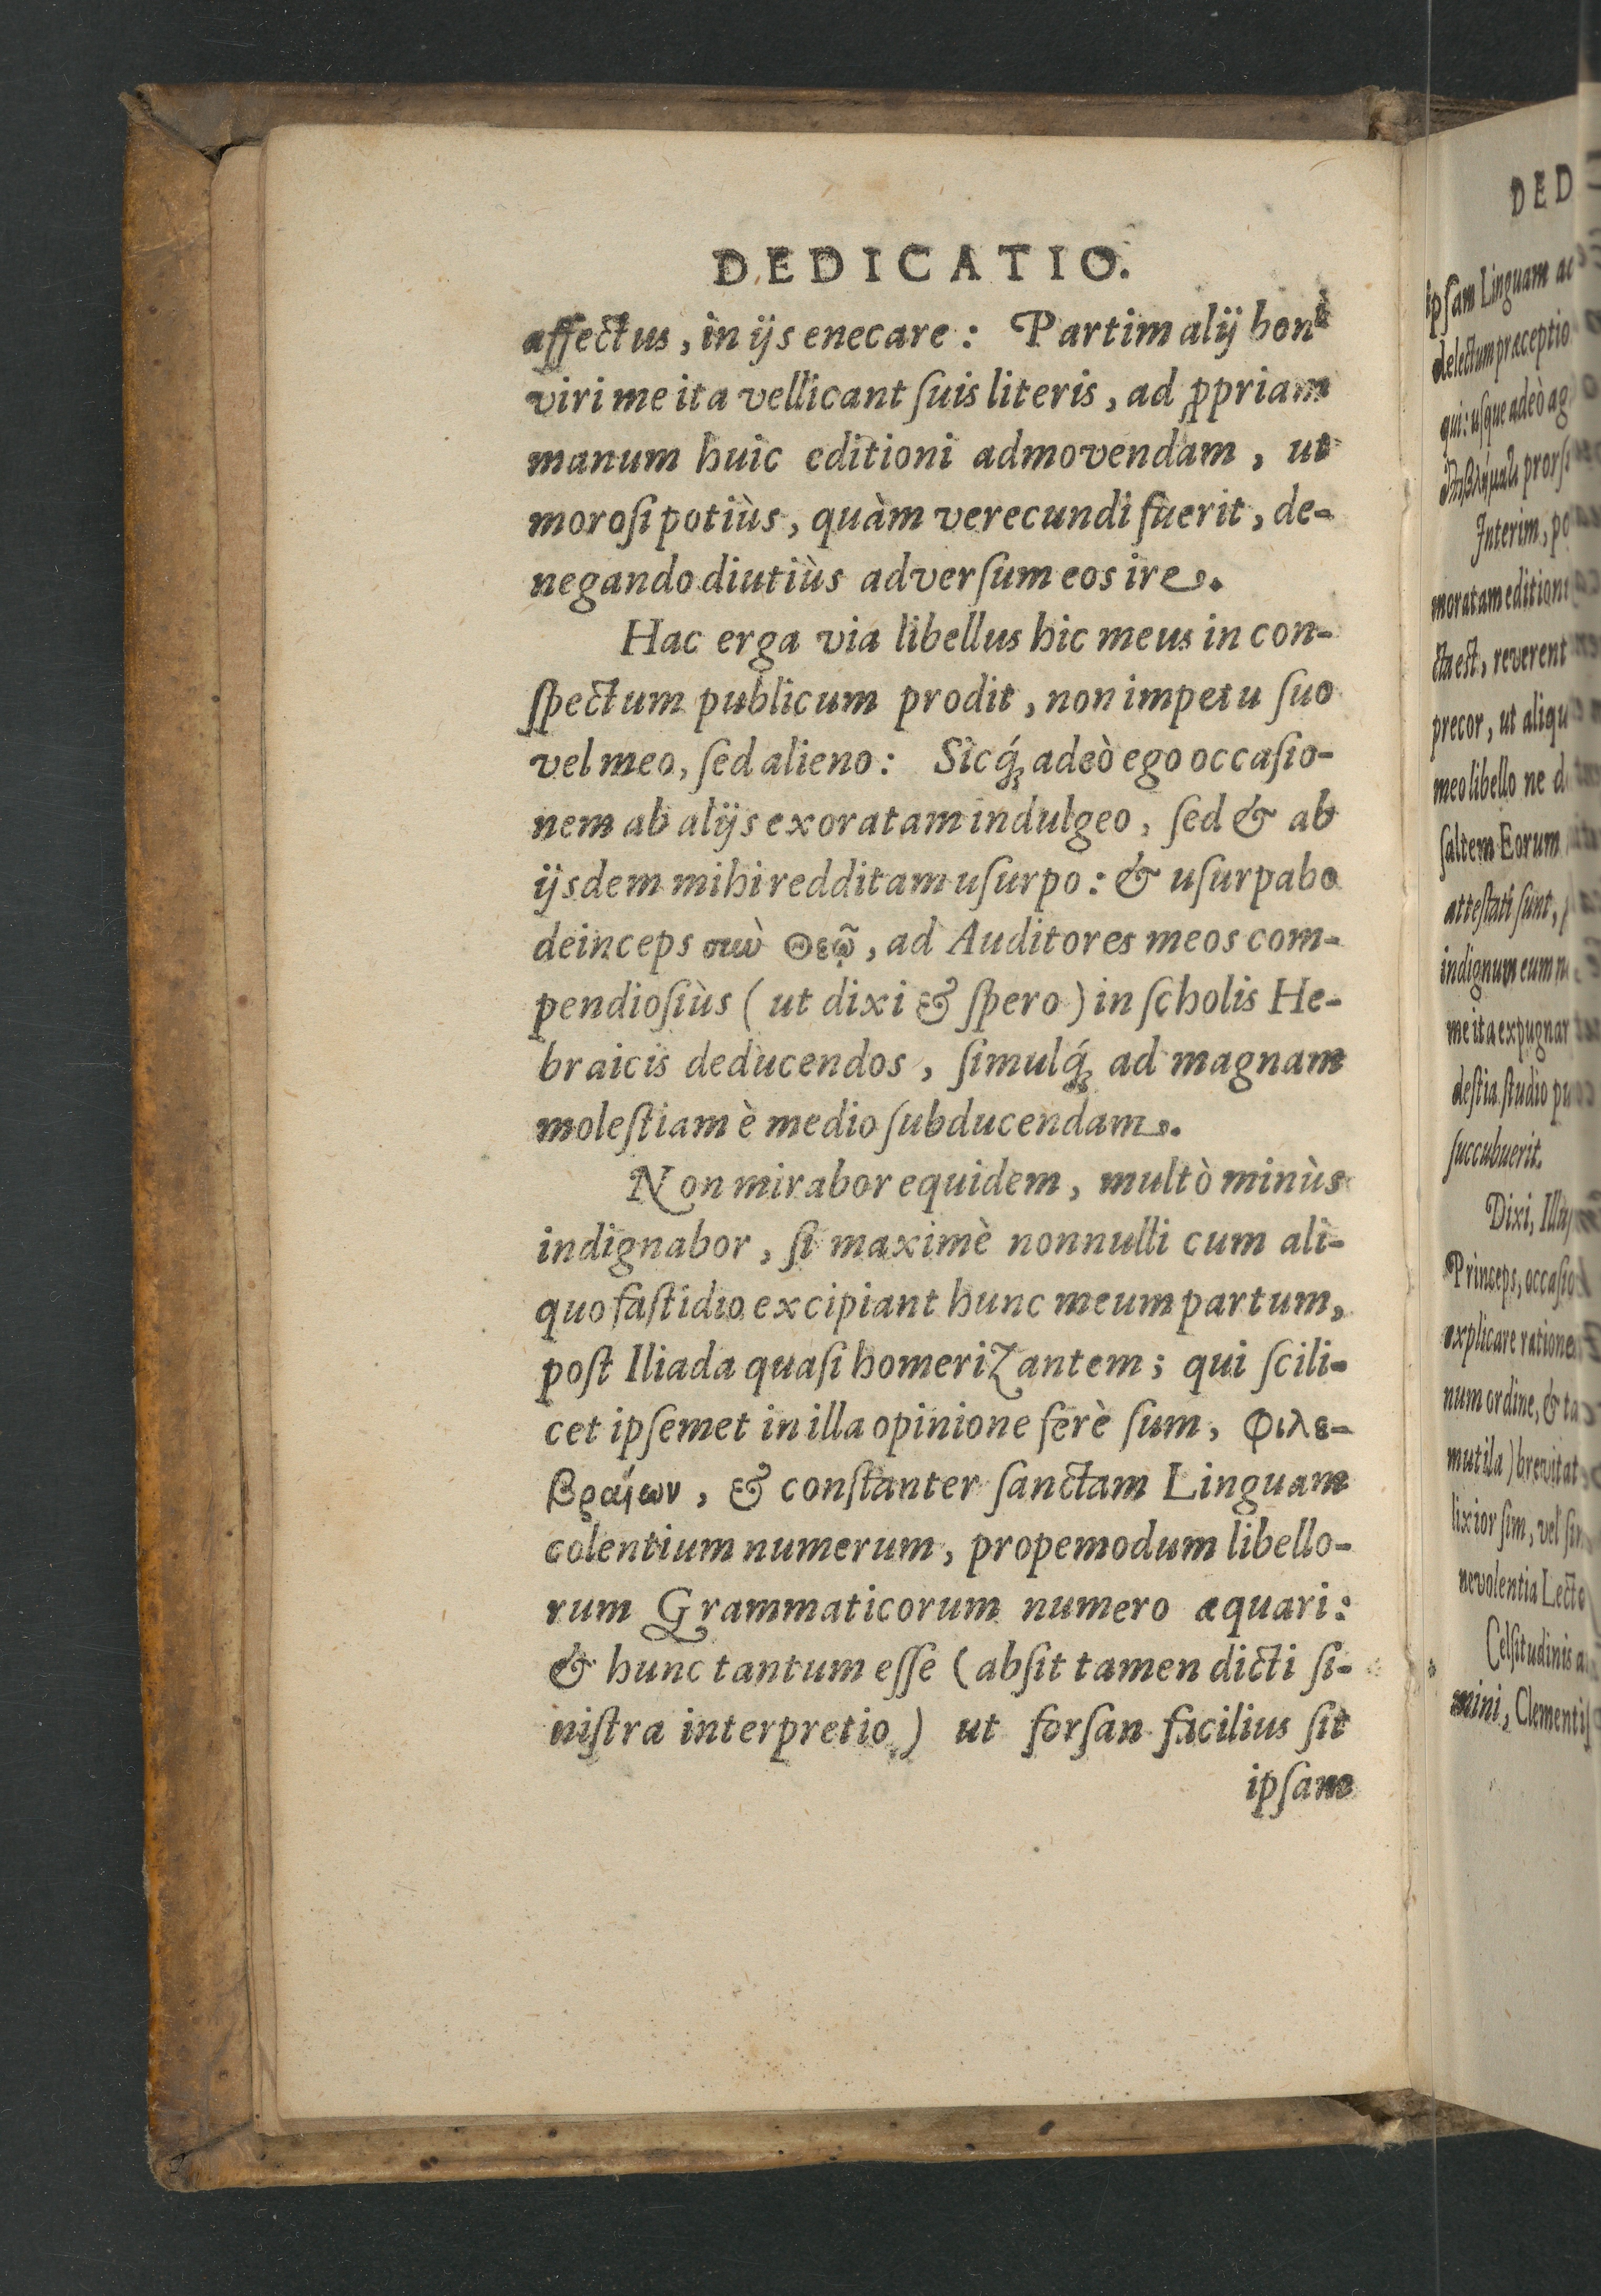 DEDICATIO.
affectus, in ijs enecare: Partim alij boni
viri me ita vellicant ſuis literis, ad ꝓpriam
manum huic editioni admovendam, ut
moroſi potiùs, quàm verecundi fuerit, de-
negando diutiùs adverſum eos ire.
Hac erga via libellus hic meus in con-
ſpectum publicum prodit, non impetu ſuo
vel meo, ſed alieno: Sicq́; adeò ego occaſio-
nem ab alijs exoratam indulgeo, ſed & ab
ijsdem mihi redditam uſurpo: & uſurpabo
deinceps σιωὼ Θεῷ, ad Auditores meos com-
pendioſiùs (ut dixi & ſpero) in ſcholis He-
braicis deducendos, ſimulq́; ad magnam
moleſtiam è medio ſubducendam.
Non mirabor equidem, multò minùs
indignabor, ſi maximè nonnulli cum ali-
quo faſtidio excipiant hunc meum partum,
poſt Iliada quaſi homerizantem; qui ſcili-
cet ipſemet in illa opinione ferè ſum, φιλε-
βραίων, & conſtanter ſanctam Linguam
colentium numerum, propemodum libello-
rum Grammaticorum numero æquari:
& hunc tantum eſſe (abſit tamen dicti ſi-
niſtra interpretio) ut forſan facilius ſit
ipſam
DED
ipſam Linguam
delectum præceptio
qui: uſque adeò ag
prorſ
Interim, po
moratam edition
cta eſt, reverent
precor, ut aliqu
meo libello ne d
ſaltem Eorum
atteſtati ſunt,
indignum eum n
me ita expugnar
deſtia ſtudio pu
ſuccubuerit.
Dixi, Illuſ
Princeps, occaſio
explicare ratione
num ordine, & ta
mutila) brevitat
lixior ſim, vel ſin
nevolentia Lecto
Celſitudinis a
mini, Clementiſ